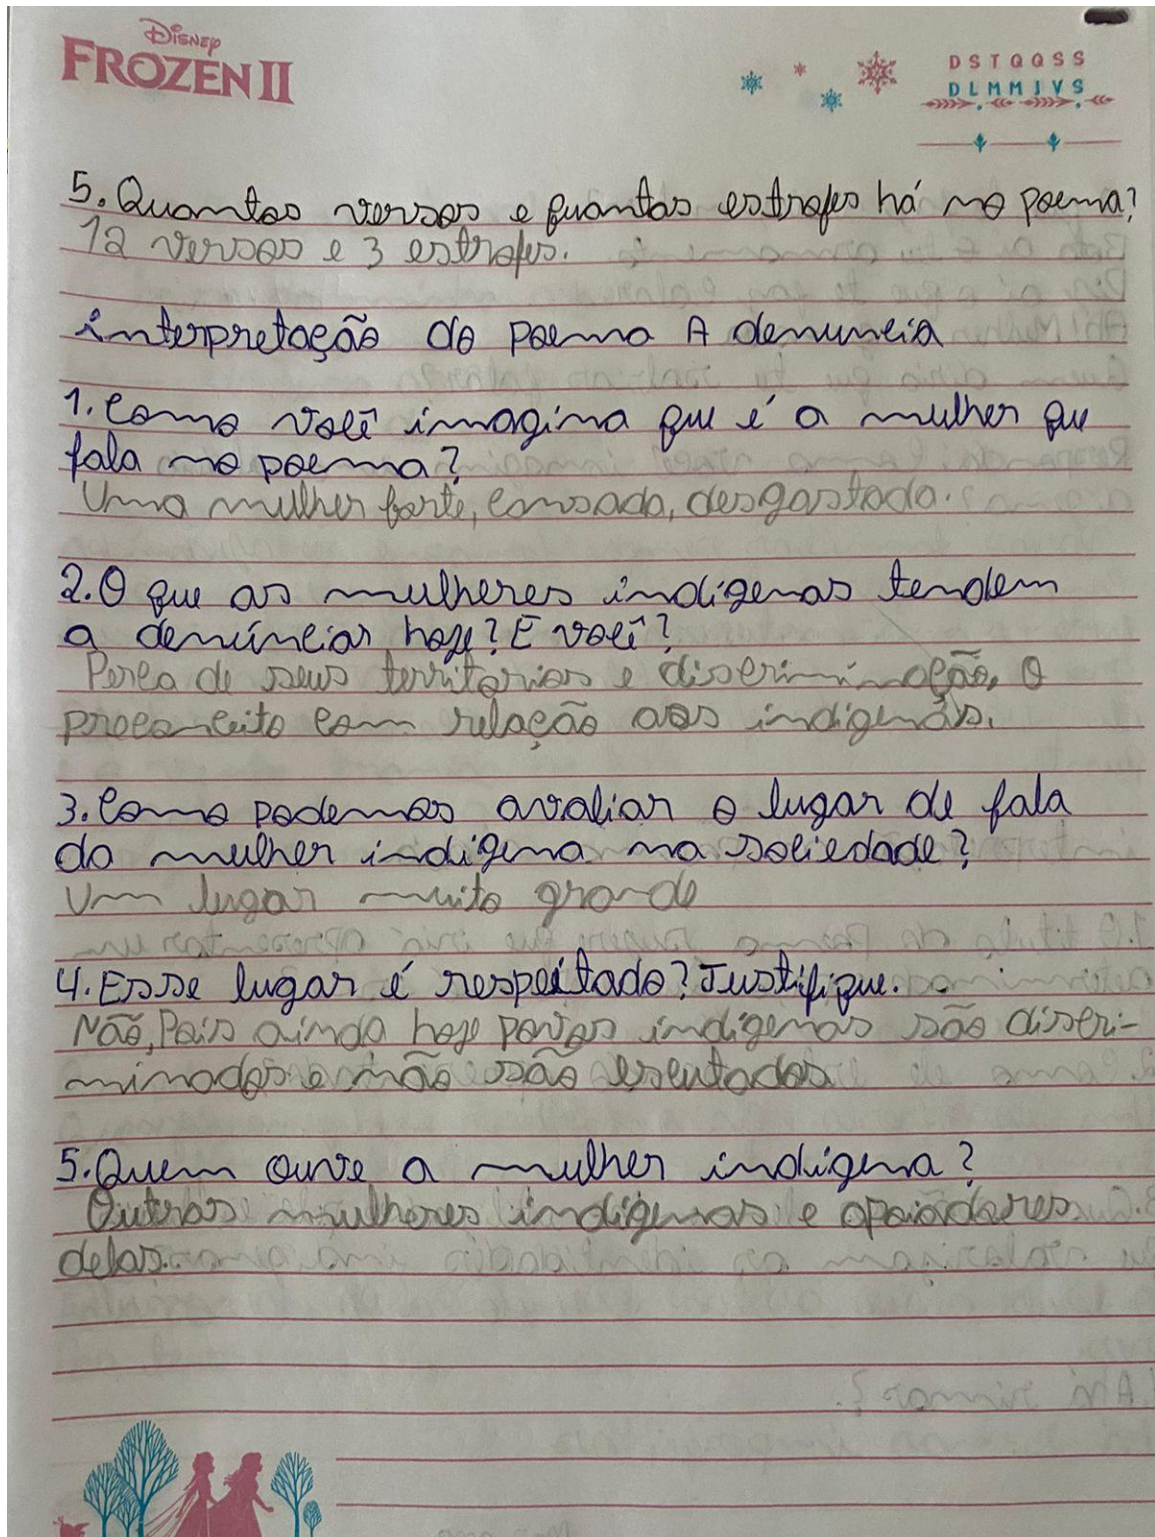 Disney
FROZEN II
D S T Q Q S S
D L M M J V S
5. Quantos versos e quantas estrofes há no poema?
12 versos e 3 estrofes.
interpretação do poema A denuncia
1. Como você imagina que é a mulher que
fala no poema?
Uma mulher forte, cansada, desgastada.
2. O que as mulheres indígenas tendem
a denúnciar hoje? E você?
Perca de seus territorios e discriminação, O
preconceito com relação aos indigenás.
3. Como podemos avaliar o lugar de fala
da mulher indígena na sociedade?
Um lugar muito grande
4. Esse lugar é respeitado? Justifique.
Não, Pois ainda hoje povos indigenas são discri-
minados e não são escutados
5. Quem ouve a mulher indígena?
Outras mulheres indígenas e apoiadores
delas.